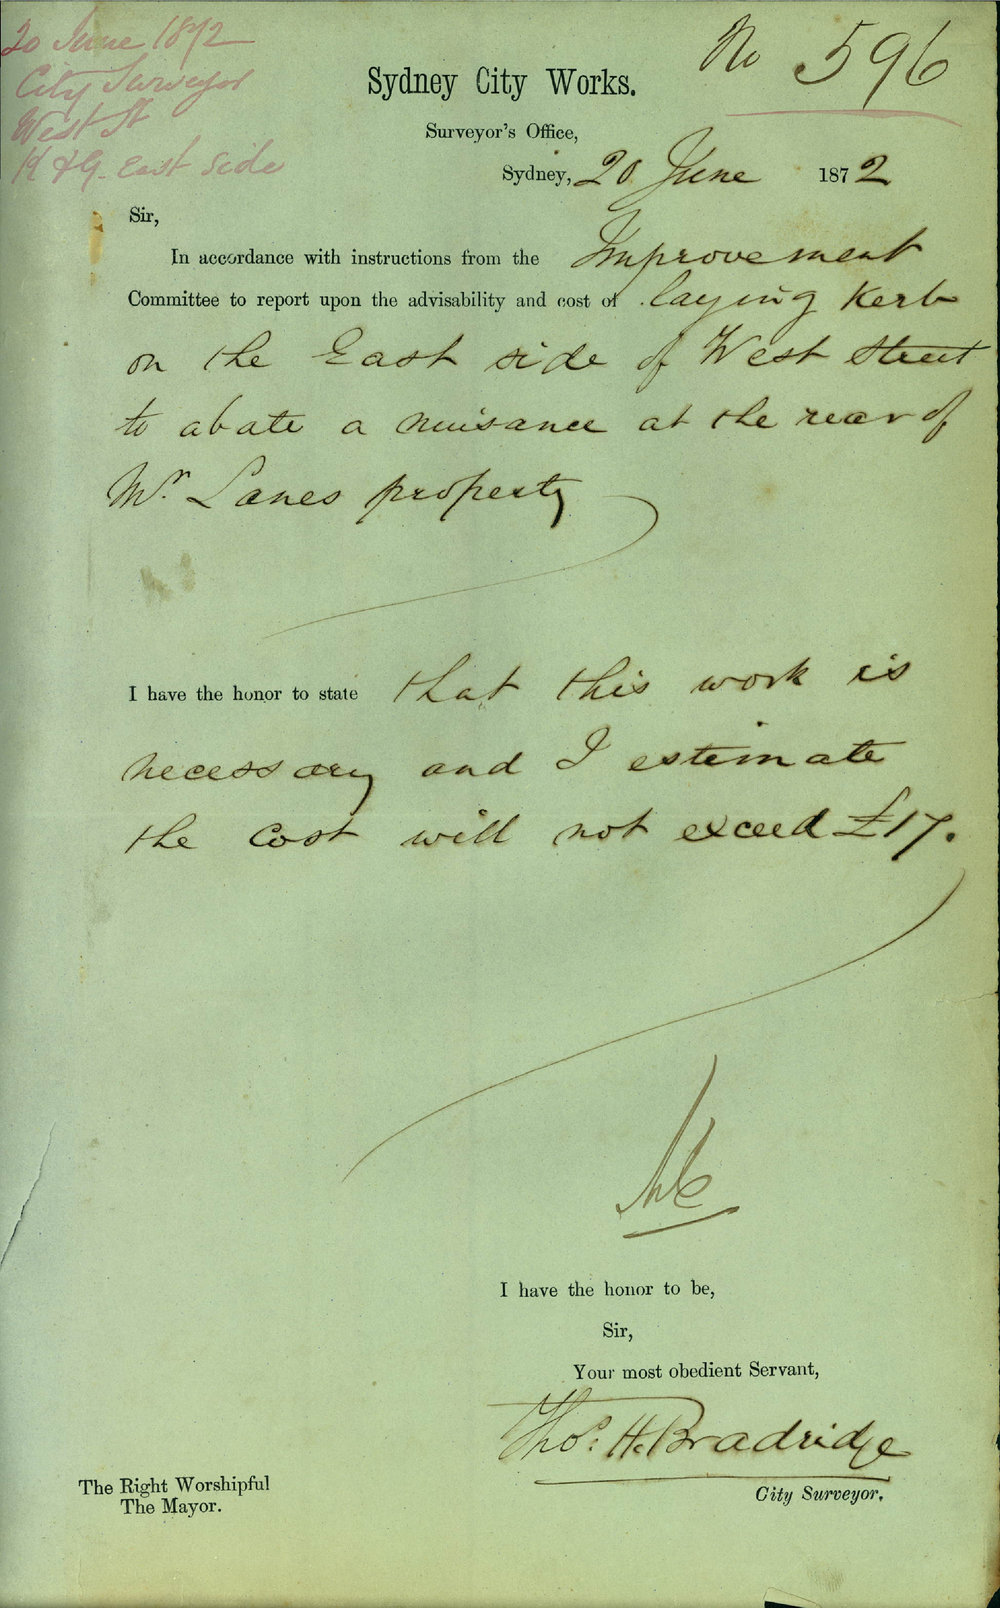 20 June 1872
City Surveyor
West St
K & G. East Side
No 596
Sydney City Works.
Surveyor's Office,
Sydney, 20 June 1872
Sir,
In accordance with instructions from the Improvement
Committee to report upon the advisability and cost of laying Kerb
on the East side of West Street
to abate a nuisance at the rear of
Mr. Lanes property
I have the honor to state that this work is
necessary and I estimate
the cost will not exceed £17.
I have the honor to be,
Sir,
Your most obedient Servant,
Thos. H. Bradridge
City Surveyor.
The Right Worshipful
The Mayor.